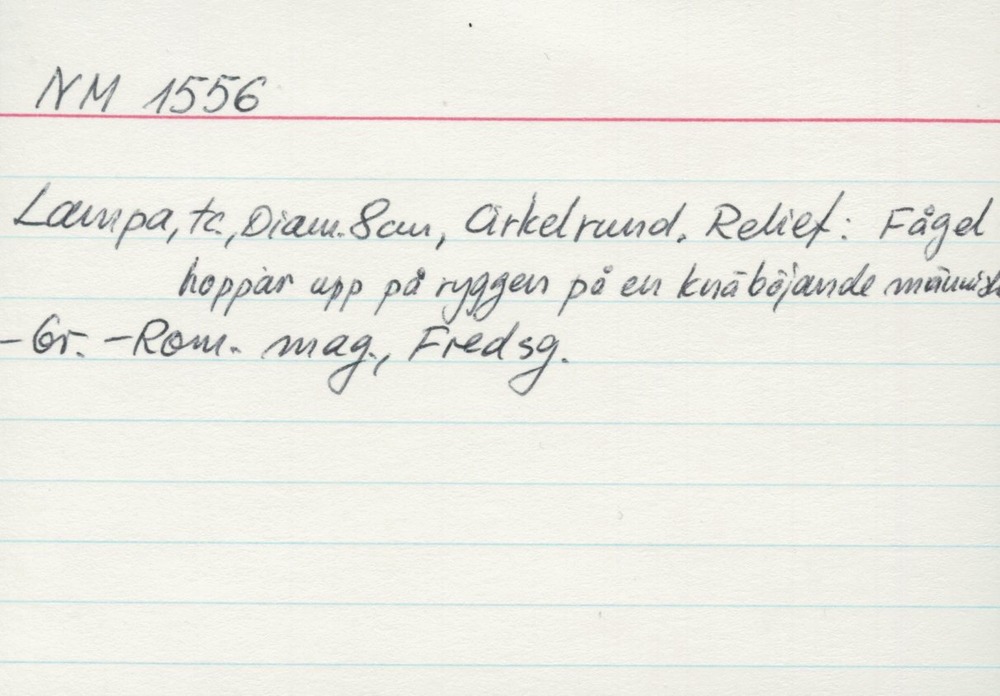 NM 1556
Lampa, tc., Diam. 8cm, Cirkelrund. Relief: Fågel
hoppar upp på ryggen på en knäböjande
- Gr. - Rom. mag., Fredsg.